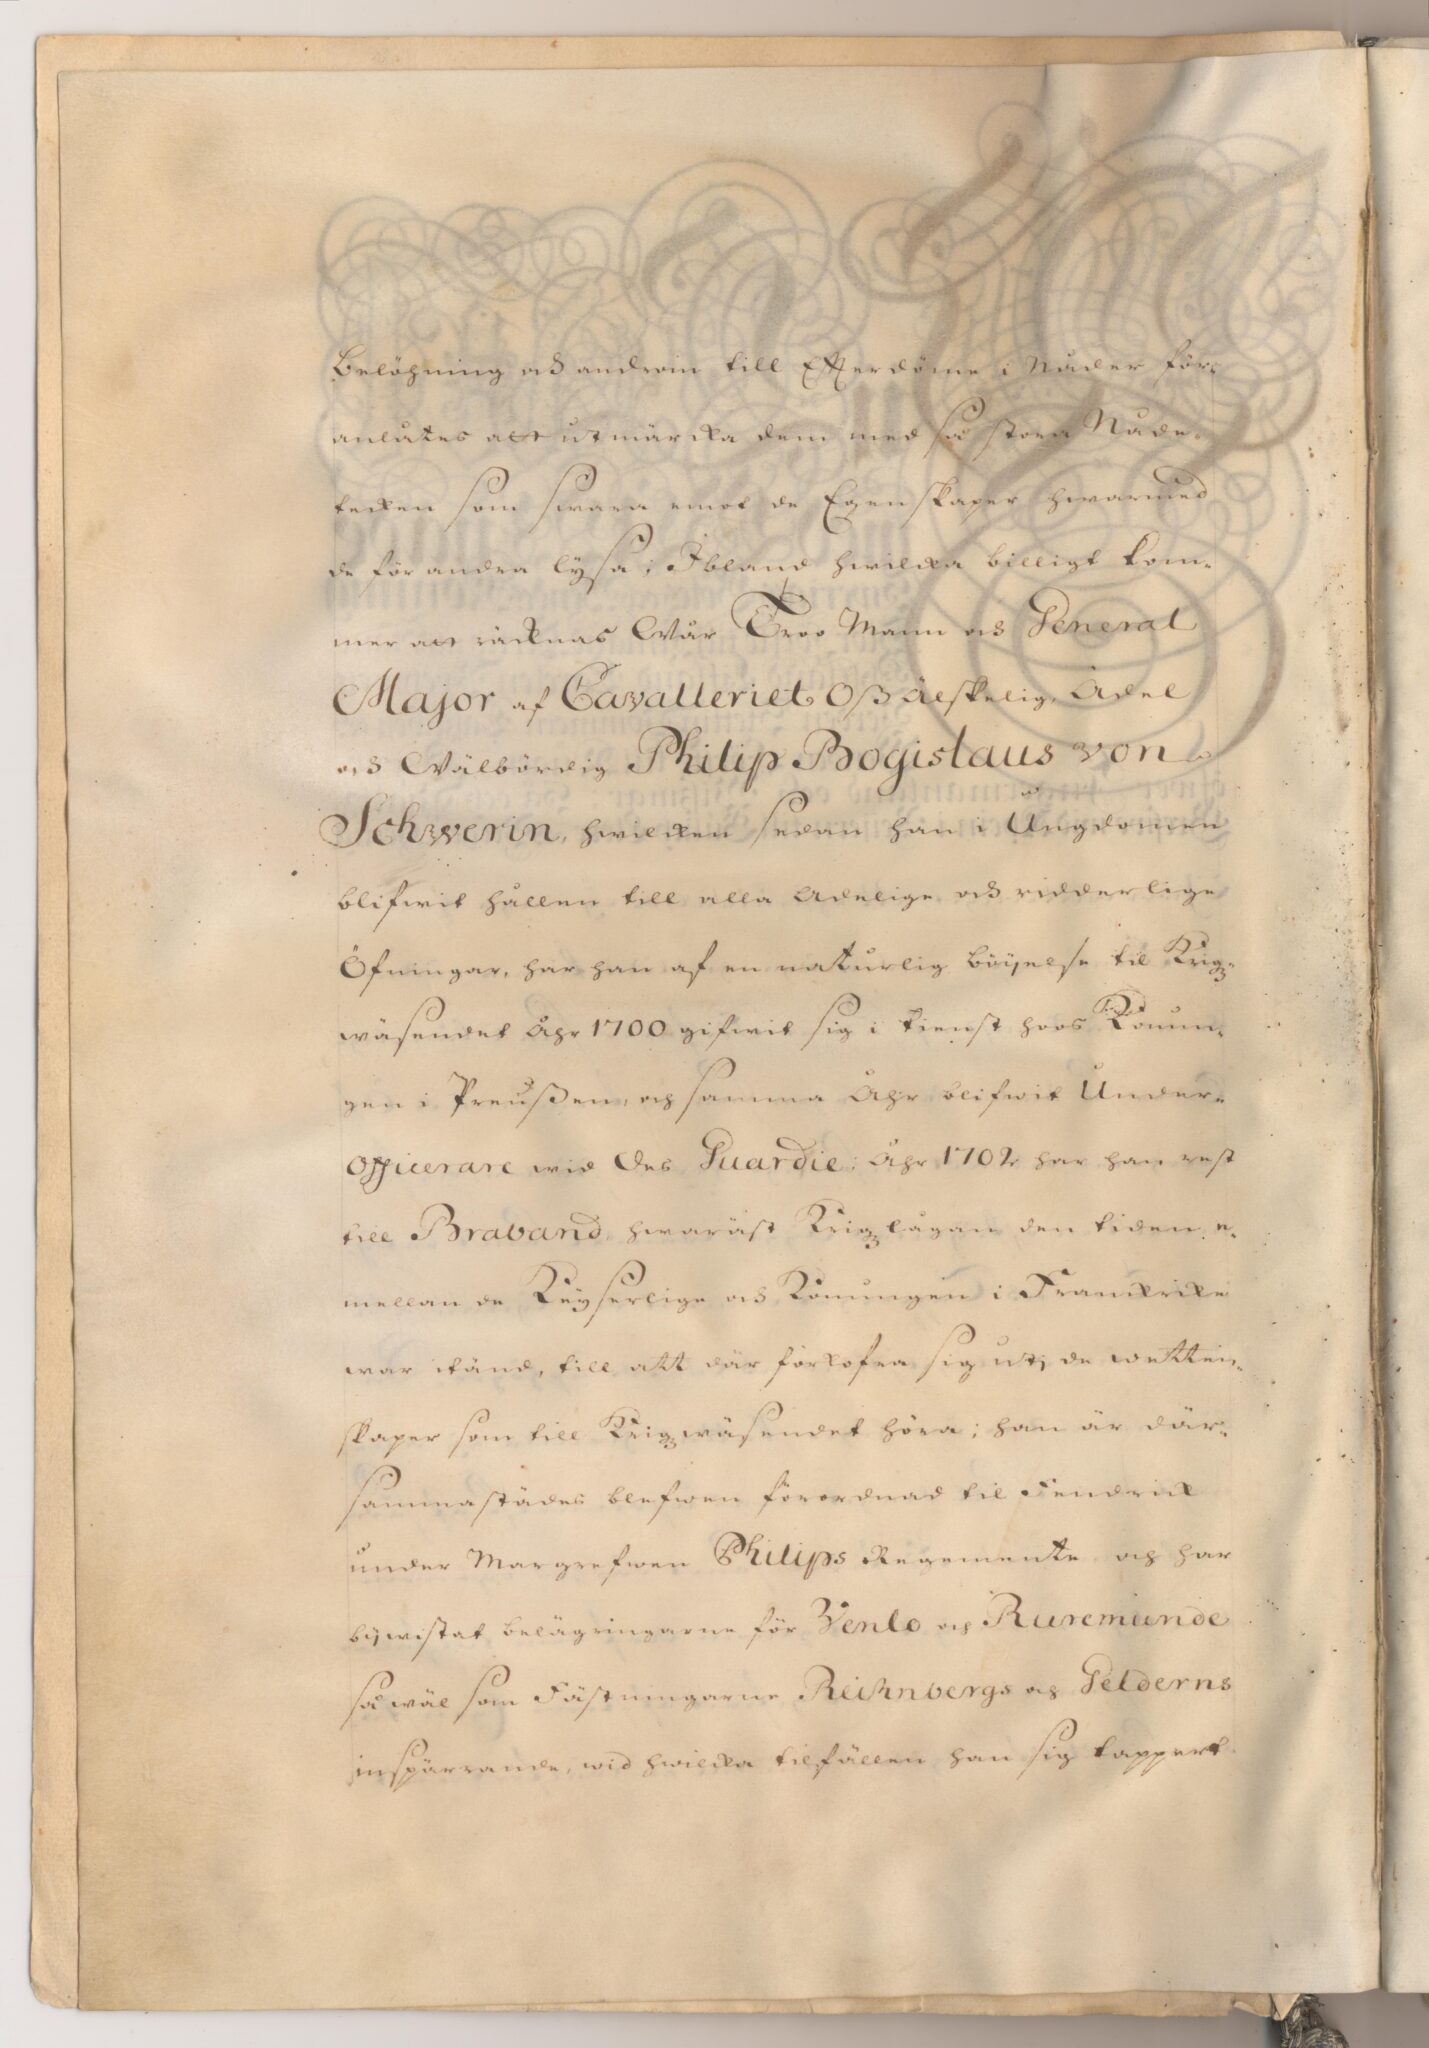 Belöhning och androm till Effterdöme i Nåder för-
anlåtes att utmärcka dem med så stora Nåde-
tecken som swara emot de Egenskaper hwarmed
de för andra lysa; Ibland hwilcka billigt kom-
mer att räcknas Wår Troo Mann och General
Major af Cavalleriet Oß älskelig, Adel
och Wälbördig Philip Bogislaus von
Schwerin, hwilcken sedan han i Ungdomen
blifwit hållen till alla Adelige och ridderlige
Öfningar, har han af en naturlig böijelse til Krigz-
wäsendet Åhr 1700 gifwit sig i tienst hoos Konun-
gen i Preußen, och samma Åhr blifwit Under-
officerare wid Des Guardie; Åhr 1702 har han rest
till Braband, hwaräst Krigzlågan den tiden e-
mellan de Keyserlige och Konungen i Franckrike
war itänd, till att där förkofra sig uti de wetten-
skaper som till Krigzwäsendet höra; han är där-
sammastädes blefwen förordnad til Fendrick
under Margrefwen Philips Regemente och har
bijwistat belägringarne för Venlo och Ruremunde
så wäl som Fästningarne Reichnbergs och Gelderns
inspärrande, wid hwilcka tilfällen han sig tappert